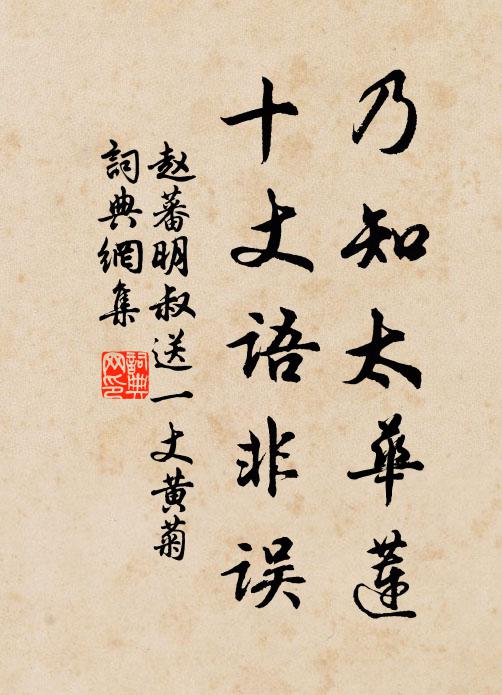 乃知太華蓮
十丈語非误
赵蕃明叔送一丈黄菊
詞典網集
詞典网印